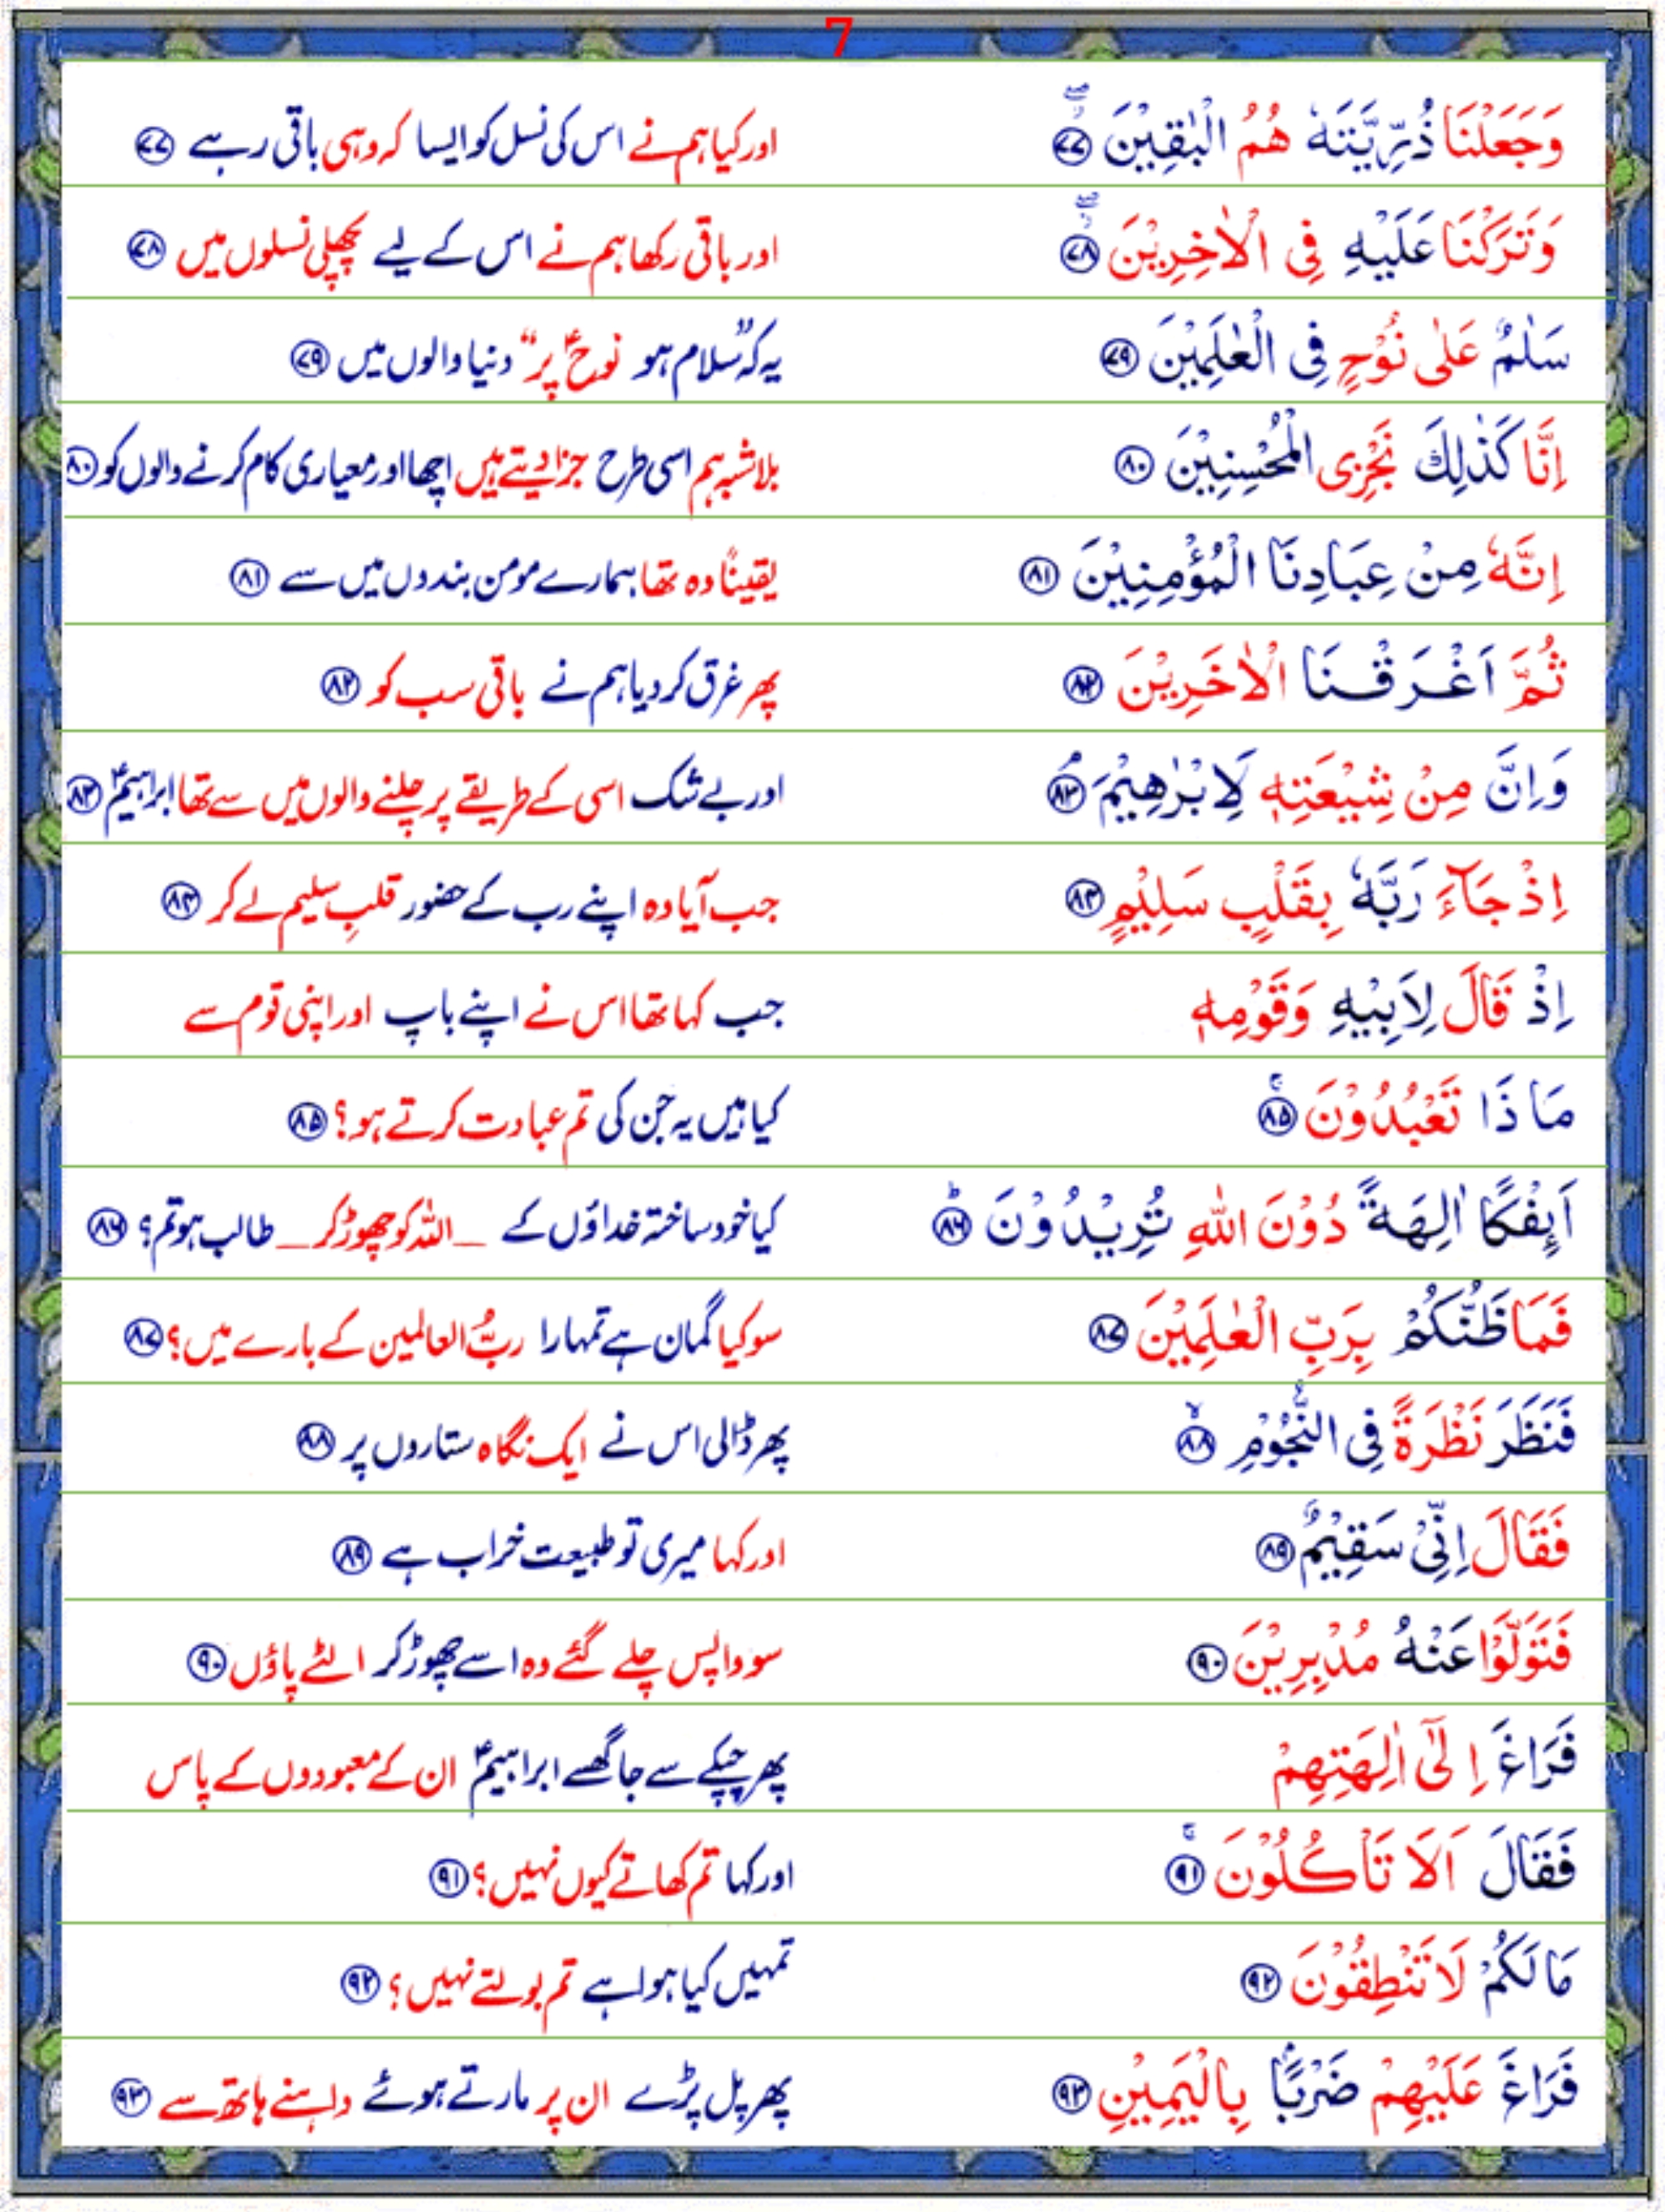 7
وَجَعَلْنَا ذُرِّيَّتَهٗ هُمُ الْبٰقِيْنَ ۖ ۷۷ اور کیا ہم نے اس کی نسل کو ایسا کہ وہی باقی رہے ۷۷
وَتَرَكْنَا عَلَيْهِ فِى الْاٰخِرِيْنَ ۖ ۷۸ اور باقی رکھا ہم نے اس کے لیے پچھلی نسلوں میں ۷۸
سَلٰمٌ عَلٰى نُوْحٍ فِى الْعٰلَمِيْنَ ۷۹ یہ کہ ”سلام ہو نوحؑ پر“ دنیا والوں میں ۷۹
اِنَّا كَذٰلِكَ نَجْزِى الْمُحْسِنِيْنَ ۸۰ بلاشبہ ہم اسی طرح جزا دیتے ہیں اچھا اور معیاری کام کرنے والوں کو ۸۰
اِنَّهٗ مِنْ عِبَادِنَا الْمُؤْمِنِيْنَ ۸۱ یقیناً وہ تھا ہمارے مومن بندوں میں سے ۸۱
ثُمَّ اَغْرَقْنَا الْاٰخَرِيْنَ ۸۲ پھر غرق کر دیا ہم نے باقی سب کو ۸۲
وَاِنَّ مِنْ شِيْعَتِهٖ لَاِبْرٰهِيْمَ ۘ ۸۳ اور بے شک اسی کے طریقے پر چلنے والوں میں سے تھا ابراہیمؑ ۸۳
اِذْ جَآءَ رَبَّهٗ بِقَلْبٍ سَلِيْمٍ ۸۴ جب آیا وہ اپنے رب کے حضور قلبِ سلیم لے کر ۸۴
اِذْ قَالَ لِاَبِيْهِ وَقَوْمِهٖ جب کہا تھا اس نے اپنے باپ اور اپنی قوم سے
مَاذَا تَعْبُدُوْنَ ۚ ۸۵ کیا ہیں یہ جن کی تم عبادت کرتے ہو؟ ۸۵
اَئِفْكًا اٰلِهَةً دُوْنَ اللّٰهِ تُرِيْدُوْنَ ؕ ۸۶ کیا خود ساختہ خداؤں کے _اللہ کو چھوڑ کر_ طالب ہو تم؟ ۸۶
فَمَا ظَنُّكُمْ بِرَبِّ الْعٰلَمِيْنَ ۸۷ سو کیا گمان ہے تمہارا ربُّ العالمین کے بارے میں؟ ۸۷
فَنَظَرَ نَظْرَةً فِى النُّجُوْمِ ۙ ۸۸ پھر ڈالی اس نے ایک نگاہ ستاروں پر ۸۸
فَقَالَ اِنِّىْ سَقِيْمٌ ۸۹ اور کہا میری تو طبیعت خراب ہے ۸۹
فَتَوَلَّوْا عَنْهُ مُدْبِرِيْنَ ۹۰ سو واپس چلے گئے وہ اسے چھوڑ کر الٹے پاؤں ۹۰
فَرَاغَ اِلٰٓى اٰلِهَتِهِمْ پھر چپکے سے جا گھسے ابراہیمؑ ان کے معبودوں کے پاس
فَقَالَ اَلَا تَاْكُلُوْنَ ۚ ۹۱ اور کہا تم کھاتے کیوں نہیں؟ ۹۱
مَا لَكُمْ لَا تَنْطِقُوْنَ ۹۲ تمہیں کیا ہوا ہے تم بولتے نہیں؟ ۹۲
فَرَاغَ عَلَيْهِمْ ضَرْبًۢا بِالْيَمِيْنِ ۹۳ پھر پل پڑے ان پر مارتے ہوئے داہنے ہاتھ سے ۹۳